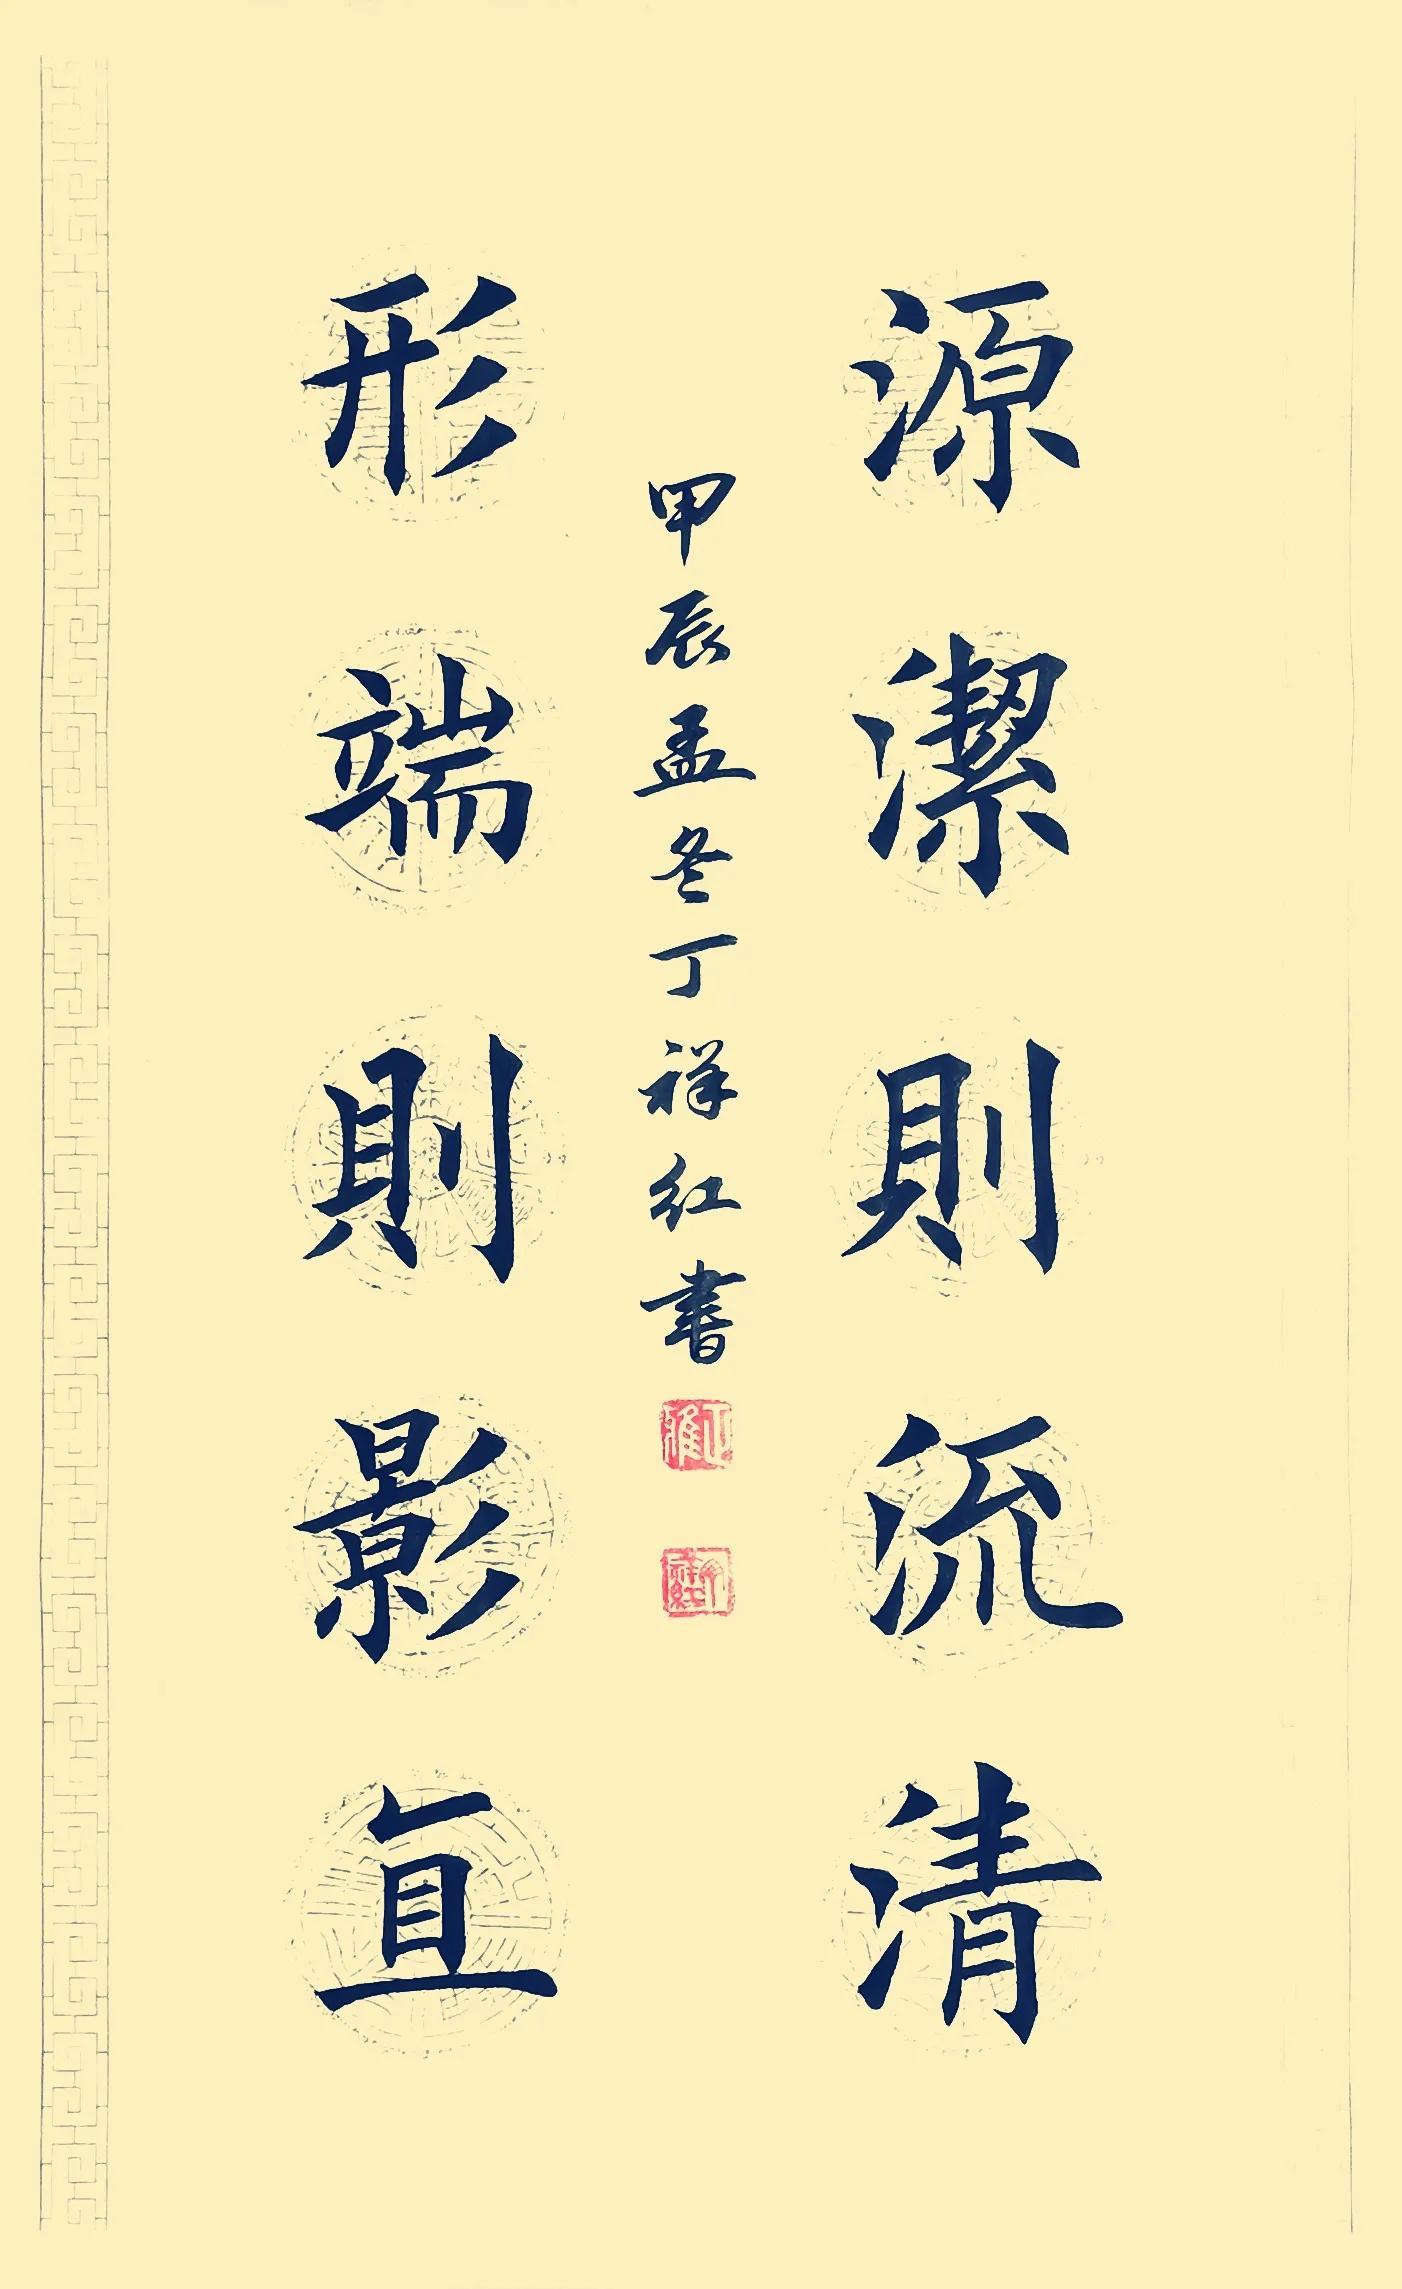 源潔則流清
形端則影直
甲辰孟冬丁祥红書